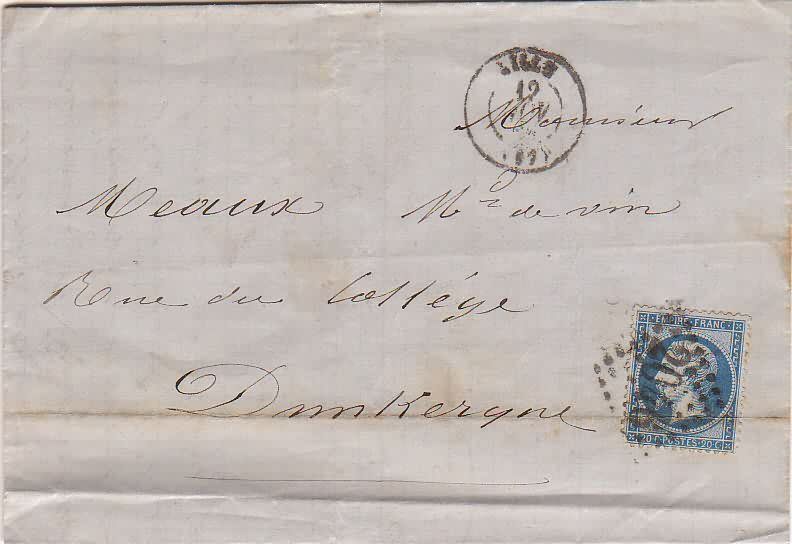 LILLE
12
(57)
Monsieur
Meaux Md de vin
Rue du Collége
Dunkerque
EMPIRE·FRANC·
20 C POSTES 20 C